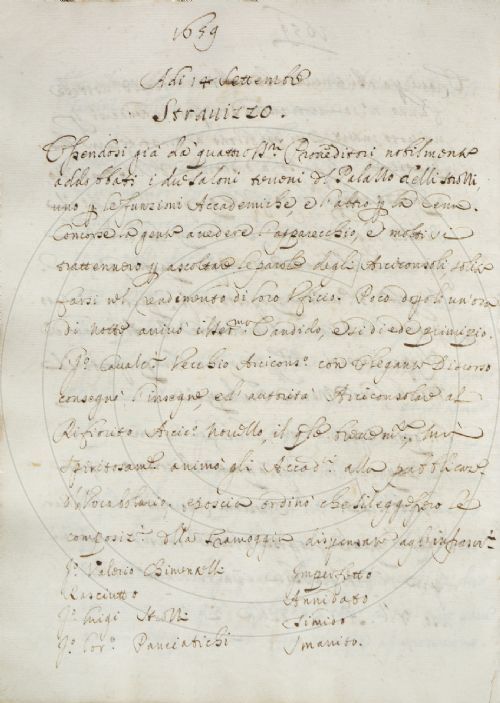 1659
Adi 14 Settembre
Stravizzo.
Essendosi già da quattro Provveditori nobilmente
addobbati i due saloni terreni del Palazzo delli Strozzi,
uno p. le funzioni Accademiche, e l'altro p. la Cena.
Concorse la gente a vedere l'apparecchio, e molti si
trattennero p. ascoltare le parole degli Arciconsoli solite
farsi nel rendimento di loro Ufficio. Poco dopo un'ora
di notte arrivò il Ser.mo Candido, e si diede principio.
Il S.r Cavalc.ti Vecchio Arcicons.o con elegante Discorso
consegnò l'insegne, ed autorità Arciconsolare al
Rifiorito Arcic.o Novello, il qle brevem.te, ma
spiritosam.te animò gli Accad.i alla pubblicaz.e
d'Vocabolario, e poscia ordinò che si leggessero le
composiz.i della tramoggia dispensate dagl'infrascri.
S.r Valerio Chimentelli Imperfetto
Rasciutto Annibato
S.r Luigi Strozzi Timido
S.r Lor.o Panciatichi Smarrito.